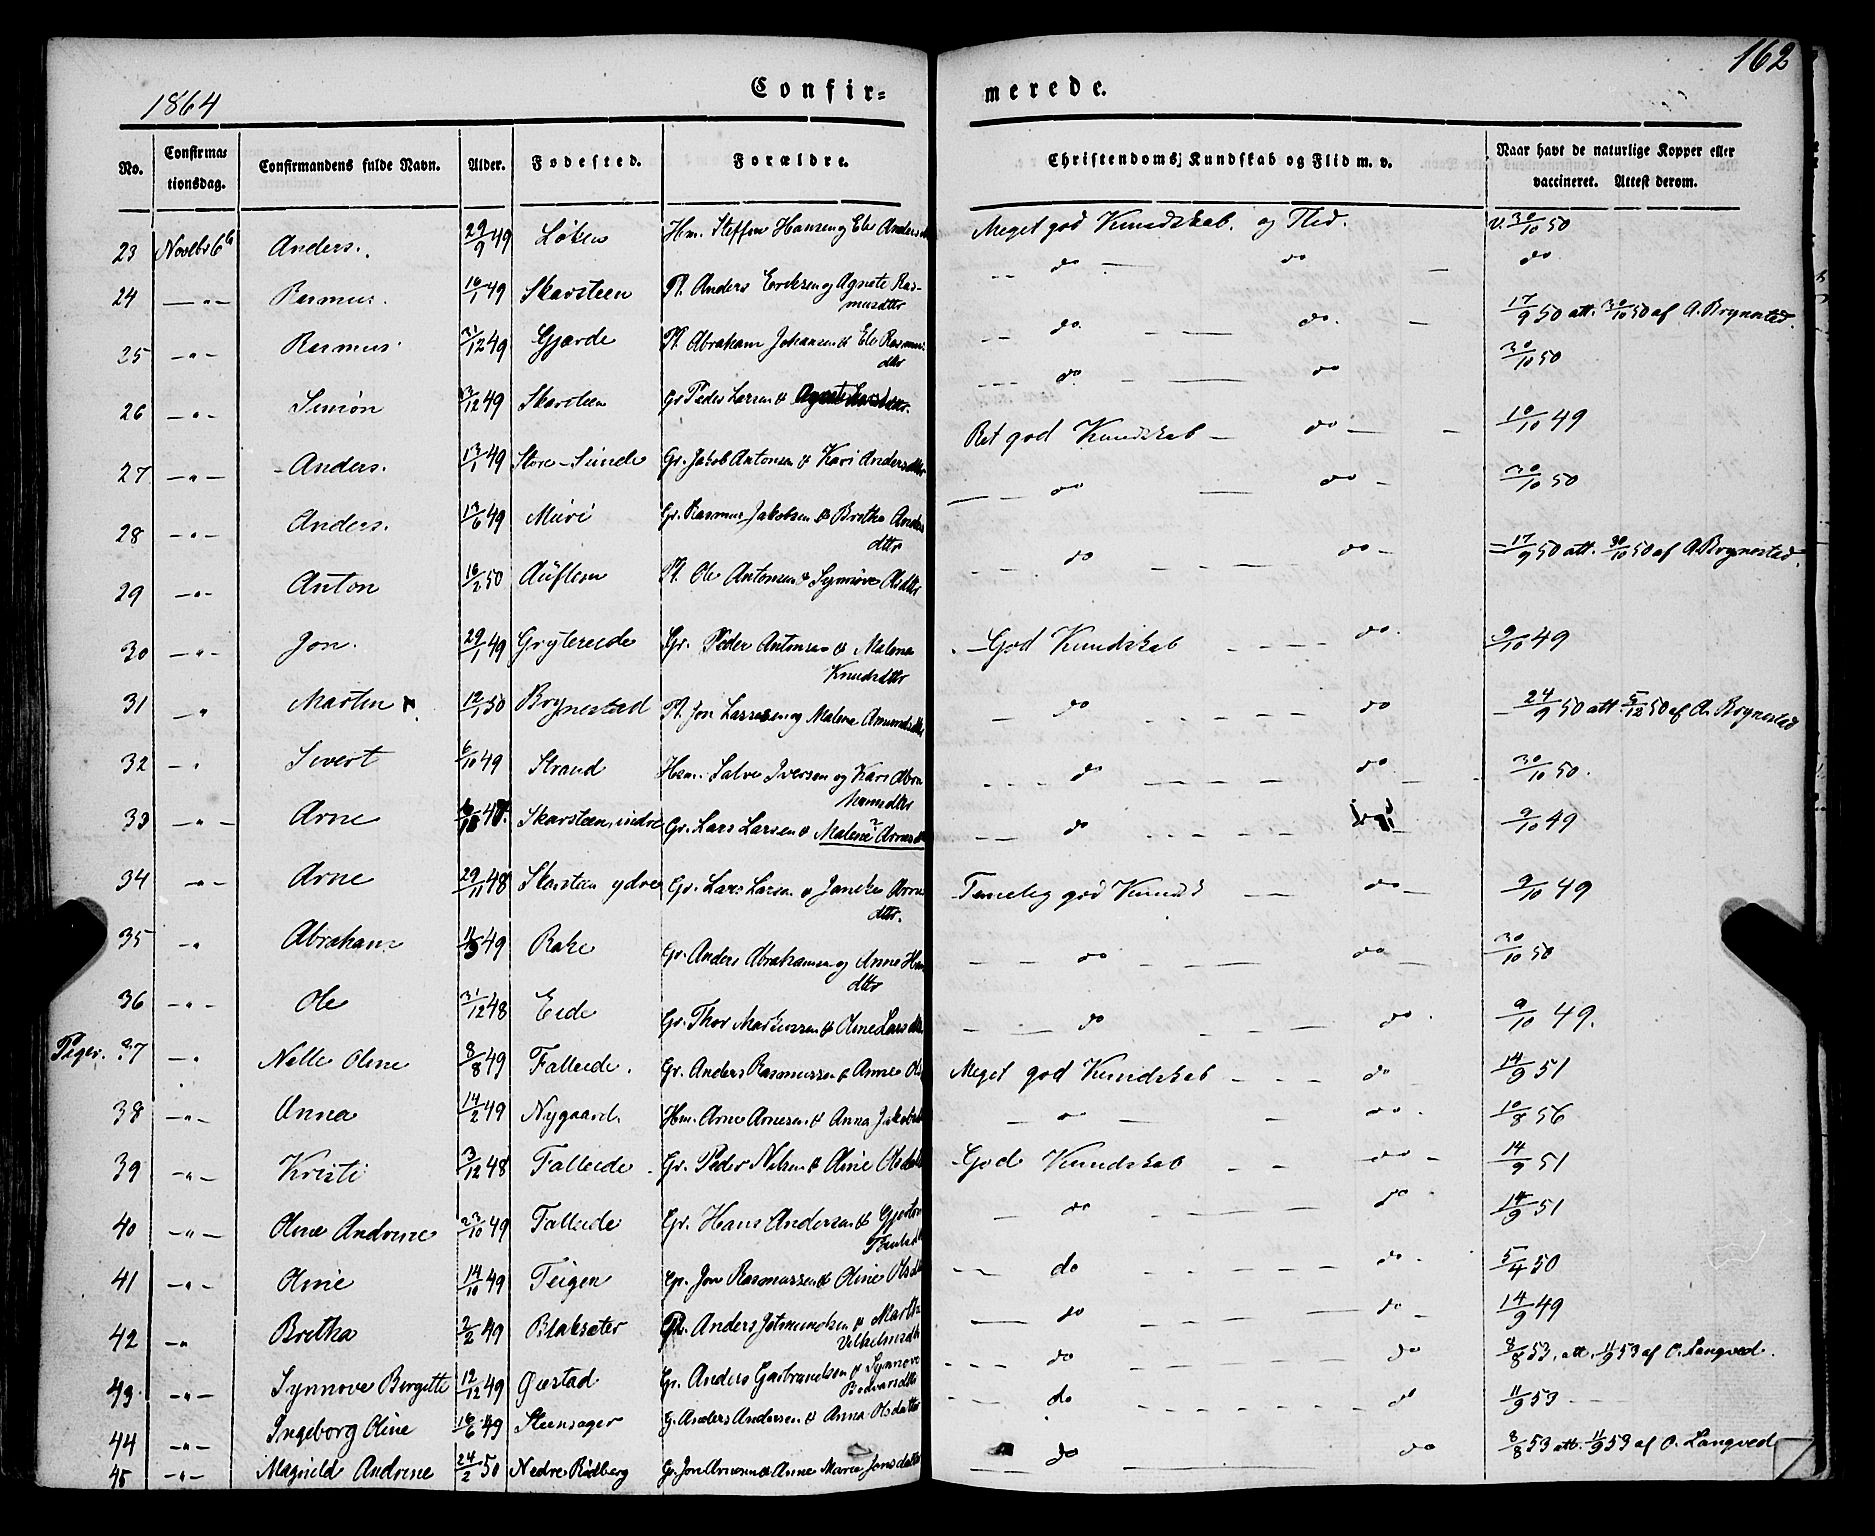 162
1864
Confir= merede.
No. Confirmationsdag. Confirmandens fulde Navn. Alder. Fødested. Forældre. Christendoms Kundskab og Flid m. v. Naar havt de naturlige Kopper eller vaccineret. Attest derom.
23 Novbr 6te Anders. 29/9 49 Løken Hm. Steffen Hansen og Eli Anders Meget god Kundskab. og Flid. v. 30/10 50
24 — " — Rasmus. 16/1 49 Skarsteen Pl. Anders Eriksen og Agnete Ras- do do do
musdtr
25 — " — Rasmus 31/12 49 Gjærde Pl. Abraham Johansen & Eli Rasmus do. do. 17/9 50 att. 30/10 50 af A. Brynestad.
dtr
26 — " — Simon 31/12 49 Skarsteen Gr Peder Larsen & do do 30/10 50
27 — " — Anders. 13/1 49 Store-Sunde Gr. Jakob Antonsen & Kari Andersdtr Ret god Kundskab — do — 10/10 49
28 — " — Anders. 13/6 49 Muri Gr. Rasmus Jakobsen & Brethe Anders do do 30/10 50
dtr
29 — " — Anton 16/2 50 Auflem Pl. Ole Antonsen & Synnøve Olsdtr do do 17/9 50 att. 30/10 50 af A. Brynestad.
30 — " — Jon. 29/1 49 Grytereide Gr. Peder Antonsen & Malena God Kundskab do. 9/10 49
Knudsdtr
31 — " Marten 12/1 50 Brynestad Pl. Jon Larssen og Malene Amundsdtr do do 24/9 50 att. 5/12 50 af A. Brynestad
32 — " Sivert 6/10 49 Strand Hsm. Salve Iversen og Kari Abra do do 30/10 50.
hamsdtr
33 — " — Arne Skarsteen, indre Gr. Lars Larsen & Malene Arnes do 9/10 49
34 — " — Arne 29/11 48 Skarsteen ydre Gr. Lars Larsen & Janike Arne Temelig god Kundsk do — 9/10 49
dtr.
35 — " Abraham 49 Rake Gr. Anders Abrahamsen og Anne Hans do do 30/10 50
dtr
36 — " — Ole 31/12 48 Eide Gr. Thor Markussen & Oline Larsdtr do do. 9/10 49.
Piger. 37 — " Nelle Oline 8/8 49 Falleide. Gr. Anders Rasmussen & Anne Ols Meget god Kundskab do 14/9 51
38 — " — Anna 14/2 49 Nygaard. Hm. Arne Arnesen & Anna Jakobs do do. 10/8 56
39 — " — Kristi 3/12 48 Falleide Gr. Peder Nilsen & Oline Olsdatt God Kundskab do — 14/9 51
40 — " — Oline Andrine 23/10 49 Falleide Gr. Hans Andersen & Gjertru do do 14/9 51
41 — " — Oline 14/10 49 Teigen Gr. Jon Rasmussen & Oline Olsd do do. 5/4 50
42 — " Brethe 2/2 49 Blaksæter Pl. Anders Jetmundsen & Marthe do do — 14/9 49
Vilhelmsdtr
43. — " — Synnøve Bergitte 12/12 49 Gustad Gr. Anders Gurbrandsen & Synnøve do do 8/8 53. att. 11/9 53 af O. Langved.
44 — " — Ingeborg Oline 16/6 49 Steensager G. Anders Andersen & Anna Olsdatter do do 11/9 53
45 — " — Magnild Andrine 24/2 50 Nedre Rødberg Gr. Jon Arnesen & Anne Marie Jonsdatter do do 8/8 53 att. 11/9 53 af O. Langved